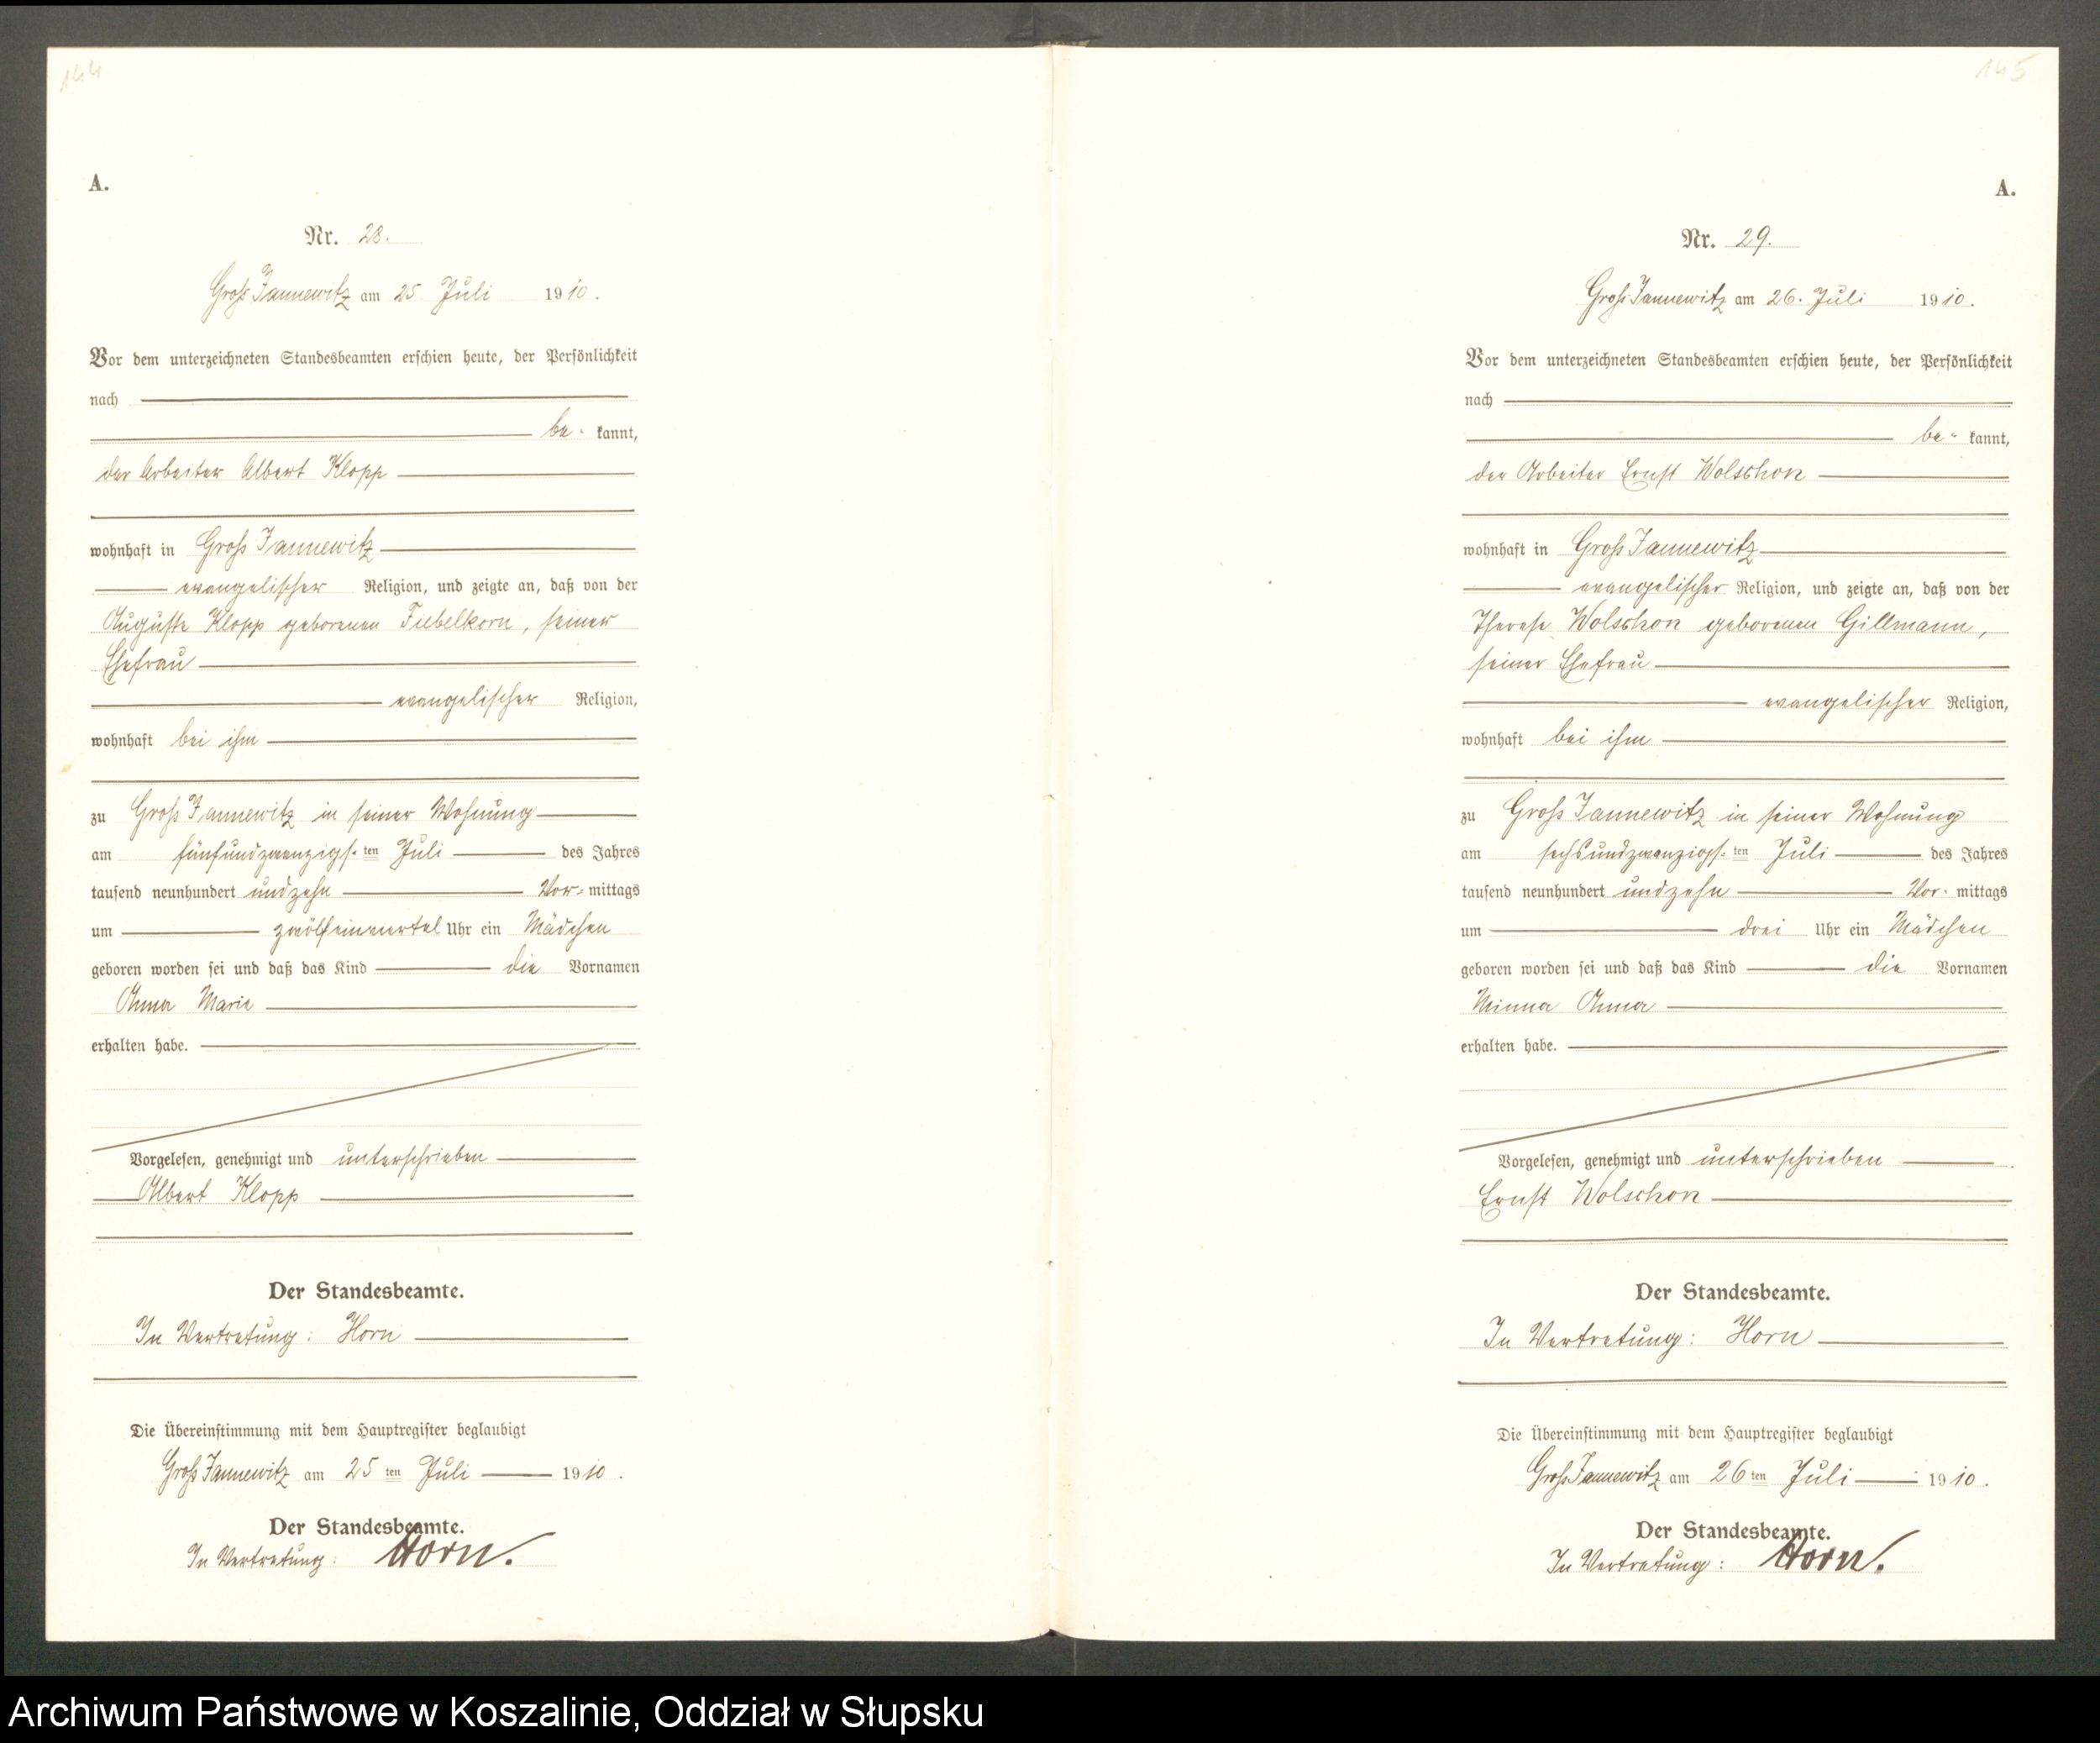 144
A.
Nr. 28.
Groß Jannewitz am 25. Juli 1910.
Vor dem unterzeichneten Standesbeamten erschien heute, der Persönlichkeit
nach
be- kannt,
der Arbeiter Albert Klopp
wohnhaft in Groß Jannewitz
evangelischer Religion, und zeigte an, daß von der
Auguste Klopp geborenen Fiebelkorn, seiner
Ehefrau
evangelischer Religion,
wohnhaft bei ihm
zu Groß Jannewitz in seiner Wohnung
am fünfundzwanzigs- ten Juli des Jahres
tausend neunhundert undzehn Vor- mittags
um zwölfeinviertel Uhr ein Mädchen
geboren worden sei und daß das Kind die Vornamen
Anna Marie
erhalten habe.
Vorgelesen, genehmigt und unterschrieben
Albert Klopp
Der Standesbeamte.
In Vertretung: Horn
Die Übereinstimmung mit dem Hauptregister beglaubigt
Groß Jannewitz am 25 ten Juli 1910.
Der Standesbeamte.
In Vertretung: Horn.
145
A.
Nr. 29.
Groß Jannewitz am 26. Juli 1910.
Vor dem unterzeichneten Standesbeamten erschien heute, der Persönlichkeit
nach
be- kannt,
der Arbeiter Ernst Wolschon
wohnhaft in Groß Jannewitz
evangelischer Religion, und zeigte an, daß von der
Therese Wolschon geborenen Gillmann,
seiner Ehefrau
evangelischer Religion,
wohnhaft bei ihm
zu Groß Jannewitz in seiner Wohnung
am sechsundzwanzigs- ten Juli des Jahres
tausend neunhundert undzehn Vor- mittags
um drei Uhr ein Mädchen
geboren worden sei und daß das Kind die Vornamen
Minna Anna
erhalten habe.
Vorgelesen, genehmigt und unterschrieben
Ernst Wolschon
Der Standesbeamte.
In Vertretung: Horn
Die Übereinstimmung mit dem Hauptregister beglaubigt
Groß Jannewitz am 26 ten Juli 1910.
Der Standesbeamte.
In Vertretung: Horn.
Archiwum Państwowe w Koszalinie, Oddział w Słupsku